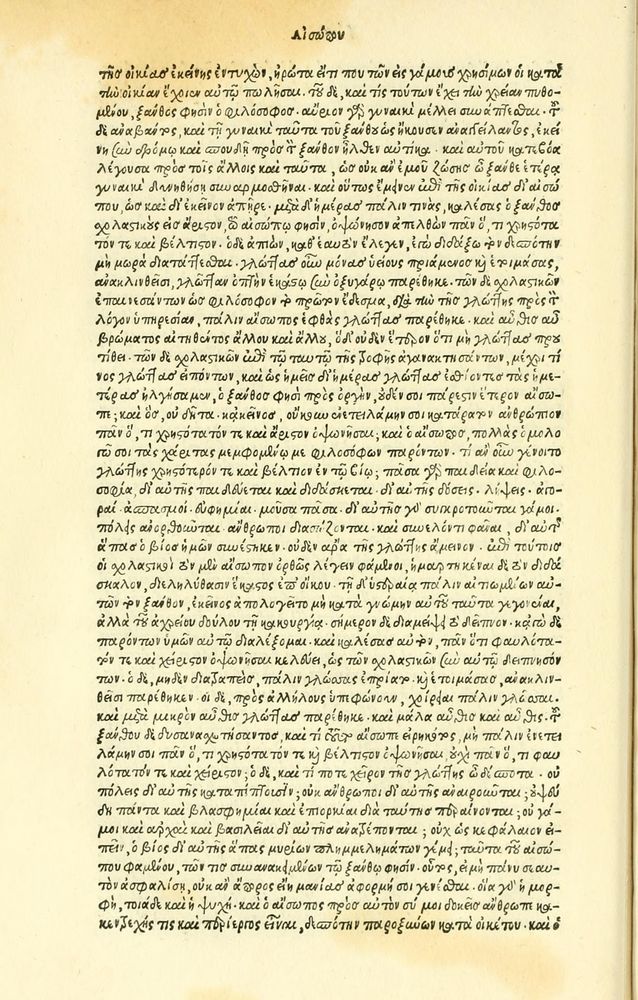 Αἰσώπου
τῆς οἰκίας ἐκείνης ἐντυχὼν, ἠρώτα εἴ τι που τῶν εἰς γάμους χρησίμων οἱ κατὰ
τὴν οἰκίαν ἔχοιεν αὐτῷ πωλῆσαι. τοῦ δὲ, καὶ τίς τούτων ἔχει τὴν χρείαν πυθο-
μένου, ξάνθος φησὶν ὁ φιλόσοφος. αὔριον γὰρ γυναικὶ μέλλει συνάπτεσθαι. τοῦ
δὲ ἀναβάντος, καὶ τῇ γυναικὶ ταῦτα τοῦ ξάνθου ὡς ἤκουσεν ἀναγγείλαντος, ἐκεί
νη σὺν δρόμῳ καὶ σπουδῇ πρὸς τὸν ξάνθον ἦλθεν αὐτίκα. καὶ αὐτοῦ κατεβόα
λέγουσα πρὸς τοῖς ἄλλοις καὶ ταῦτα, ὡς οὐκ ἂν ἐμοῦ ζώσης ὦ ξάνθε ἑτέρᾳ
γυναικὶ δυνηθείης συναρμοσθῆναι. καὶ οὕτως ἔμεινεν ἐπὶ τῆς οἰκίας δι' αἰσώ
που, ὡς καὶ δι' ἐκεῖνον ἀπῆρε. μετὰ δὲ ἡμέρας πάλιν τινὰς, καλέσας ὁ ξάνθος
σχολαστικοὺς εἰς ἄριστον, τῷ αἰσώπῳ φησὶν, ὀψώνησον ἀπελθὼν πᾶν ὅ, τι χρηστὸτα
τόν τε καὶ βέλτιστον. ὁ δὲ ἀπιὼν, καθ' ἑαυτὸν ἔλεγεν, ἐγὼ διδάξω τὸν δεσπότην
μὴ μωρὰ διατάττεσθαι. γλώττας οὖν μόνας ὑείους πριάμενος καὶ ἑτοιμάσας,
ἀνακλινθεῖσι, γλῶτταν ὀπτὴν ἑκάστῳ σὺν ὀξυγάρῳ παρέθηκε. τῶν δὲ σχολαστικῶν
ἐπαινεσάντων ὡς φιλόσοφον τὸ πρῶτον ἔδεσμα, διὰ τὴν τῆς γλώττης πρὸς τὸν
λόγον ὑπηρεσίαν, πάλιν αἴσωπος ἑφθὰς γλώττας παρέθηκε. καὶ αὖθις αὖ
βρώματος αἰτηθέντος ἄλλου καὶ ἄλλου, ὁ δ' οὐδὲν ἕτερον ὅτι μὴ γλώττας προὐ
τίθει. τῶν δὲ σχολαστικῶν ἐπὶ τῷ ταυτῷ τῆς τροφῆς ἀγανακτησάντων, μέχρι τί
νος γλώττας εἰπόντων, καὶ ὡς ἡμεῖς δι' ἡμέρας γλώττας ἐσθίοντες τὰς ἡμε-
τέρας ἠλγήσαμεν, ὁ ξάνθος φησὶ πρὸς ὀργὴν, οὐδέν σοι πάρεστιν ἕτερον αἴσω-
πε; καὶ ὃς, οὐ δῆτα. κἀκεῖνος, οὐκ οὖν ἐνετειλάμην σοι κατάρατον ἀνθρώπιον
πᾶν ὅ, τι χρηστότατόν τε καὶ ἄριστον ὀψωνῆσαι; καὶ ὁ αἴσωπος, πολλὰς ὁμολο
γῶ σοι τὰς χάριτας μεμφομένῳ με φιλοσόφων παρόντων. τί ἂν οὖν γένοιτο
γλώττης χρηστότερόν τε καὶ βέλτιον ἐν τῷ βίῳ; πᾶσα γὰρ παιδεία καὶ φιλο-
σοφία, δι' αὐτῆς παιδεύεται καὶ διδάσκεται. δι' αὐτῆς δόσεις. λήψεις. ἀγο-
ραί. ἀσπασμοί. εὐφημίαι. μοῦσα πᾶσα. δι' αὐτῆς συγκροτοῦνται γάμοι.
πόλεις ἀνορθοῦνται. ἄνθρωποι διασώζονται. καὶ συνελόντι φάναι, δι' αὐτῆς
ἅπας ὁ βίος ἡμῶν συνέστηκεν. οὐδὲν ἄρα τῆς γλώττης ἄμεινον. ἐπὶ τούτοις
οἱ σχολαστικοὶ τὸν μὲν αἴσωπον ὀρθῶς λέγειν φάμενοι, ἡμαρτηκέναι δὲ τὸν διδά
σκαλον, διεληλύθασιν ἕκαστος ἐπ' οἴκου. τῇ δ' ὑστεραίᾳ πάλιν αἰτιωμένων αὐ-
τῶν τὸν ξάνθον, ἐκεῖνος ἀπολογεῖτο μὴ κατὰ γνώμην αὐτοῦ ταῦτα γεγονέναι,
ἀλλὰ τοῦ ἀχρείου δούλου τῇ κακουργίᾳ. σήμερον δὲ διαμείψω τὸ δεῖπνον. κἀγὼ δὲ
παρόντων ὑμῶν αὐτῷ διαλέξομαι. καὶ καλέσας αὐτὸν, πᾶν ὅτι φαυλότα-
τόν τε καὶ χείριστον ὀψωνῆσαι κελεύει, ὡς τῶν σχολαστικῶν σὺν αὐτῷ δειπνησόν
των. ὁ δὲ, μηδὲν διαταραχθεὶς, πάλιν γλώσσας ἐπρίατο. καὶ ἑτοιμάσας, ἀνακλιν-
θεῖσι παρέθηκεν. οἱ δὲ, πρὸς ἀλλήλους ὑπεφώνουν, χοίρειαι πάλιν γλῶσσαι.
καὶ μετὰ μικρὸν αὖθις γλώττας παρέθηκε. καὶ μάλα αὖθις καὶ αὖθις. τοῦ
ξάνθου δὲ δυσανασχετήσαντος, καὶ τί τοῦτο αἴσωπε εἰρηκότος, μὴ πάλιν ἐνετει
λάμην σοι πᾶν ὅ, τι χρηστότατόν τε καὶ βέλτιστον ὀψωνῆσαι, οὐχὶ πᾶν ὅ, τι φαυ
λότατόν τε καὶ χείριστον; ὁ δὲ, καὶ τί ποτε χεῖρον τῆς γλώττης ὦ δέσποτα. οὐ
πόλεις δι' αὐτῆς καταπίπτουσιν; οὐκ ἄνθρωποι δι' αὐτῆς ἀναιροῦνται; οὐ ψεύ
δη πάντα καὶ βλασφημίαι καὶ ἐπιορκίαι διὰ ταύτης περαίνονται; οὐ γά-
μοι καὶ ἀρχαὶ καὶ βασιλεῖαι δι' αὐτῆς ἀνατρέπονται; οὐχ ὡς κεφάλαιον εἰ-
πεῖν, ὁ βίος δι' αὐτῆς ἅπας μυρίων πλημμελημάτων γέμει; ταῦτα τοῦ αἰσώ-
που φαμένου, τῶν τις συνανακειμένων τῷ ξάνθῳ φησίν. οὗτος, εἰ μὴ πάνυ σεαυ-
τὸν ἀσφαλίσῃ, οὐκ ἂν ἄπορος εἴη μανίας ἀφορμή σοι γενέσθαι. οἵα γὰρ ἡ μορ-
φὴ, τοιάδε καὶ ἡ ψυχή. καὶ ὁ αἴσωπος πρὸς αὐτὸν σύ μοι δοκεῖς ἄνθρωπε κα-
κεντρεχής τις καὶ περίεργος εἶναι, δεσπότην παροξύνων κατὰ οἰκέτου. καὶ ὁ